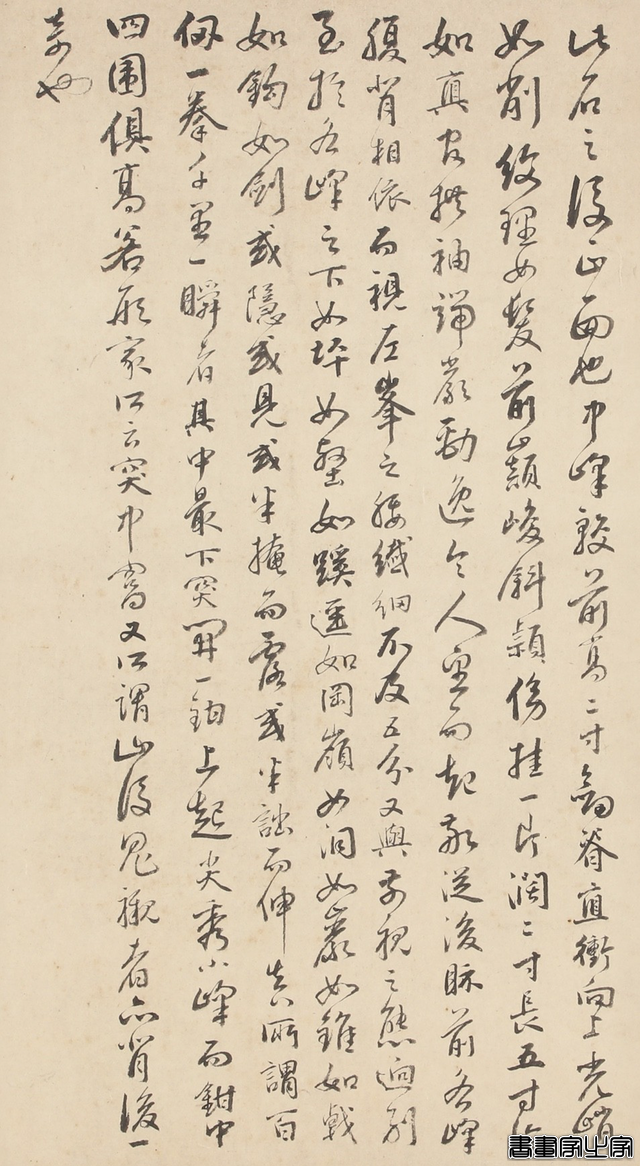 此石之後正面也中峰較前高二寸劍脊直衝向上光峭
如削紋理如髮前巔峻斜頴傍挂一片濶二寸長五寸
如真官拱袖端嚴勁逸令人望而起敬從後眎前各峰
腹背相依而視左峯之腰纖細不及五分又與前視之態迥別
至於各峰之下如坪如壑如蹊逕如岡嶺如洞如巖如錐如戟
如鈎如劍或隱或見或半掩而露或半詘而伸真所謂百
仞一拳千里一瞬者其中最下突開一鉗上起尖秀小峰而鉗中
四圍俱高若形家所云突中窩又所謂山後鬼襯者亦背後一
奇也
書畫家之家